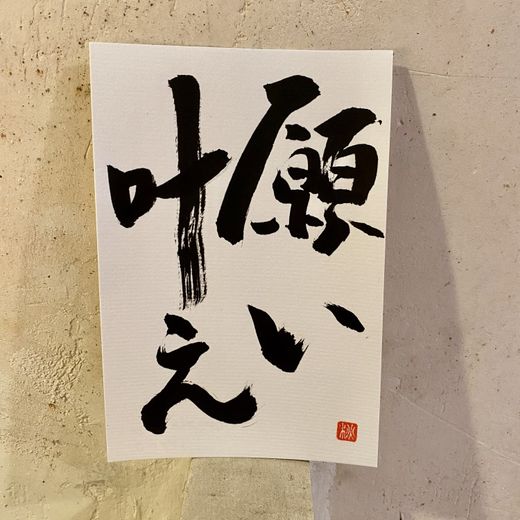 願い
叶え